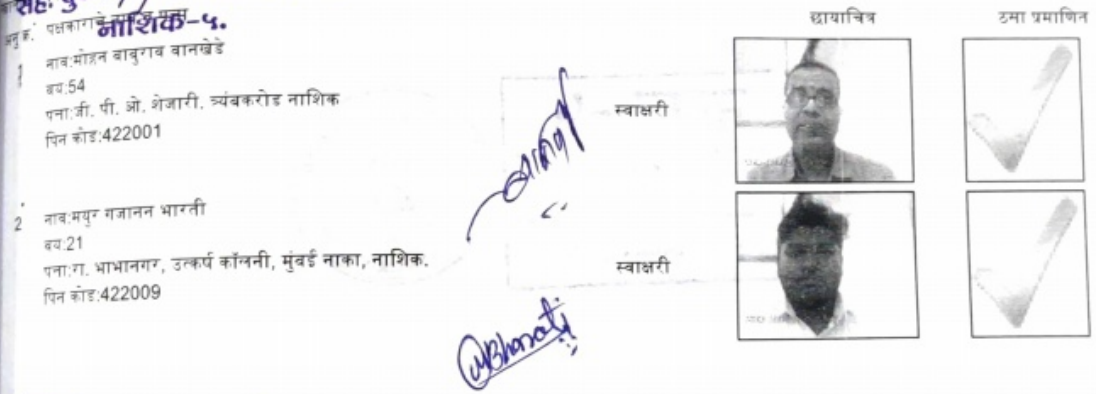 सह.
नाशिक-५.
अनु क्र. पक्षकाराचे
छायाचित्र
ठसा प्रमाणित
1
नाव:मोहन बाबुराव वानखेडे
वय:54
पत्ता:जी. पी. ओ. शेजारी. त्र्यंबकरोड नाशिक
पिन कोड:422001
स्वाक्षरी
2
नाव:मयुर गजानन भारती
वय:21
पत्ता:रा. भाभानगर, उत्कर्ष कॉलनी, मुंबई नाका, नाशिक.
पिन कोड:422009
स्वाक्षरी
Bharati